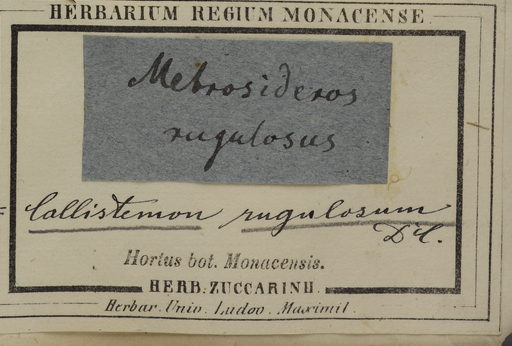 HERBARIUM REGIUM MONACENSE.
Metrosideros
rugulosus
= Callistemon rugulosum
DC.
Hortus bot. Monacensis.
HERB. ZUCCARINII.
Herbar. Univ. Ludov. Maximil.